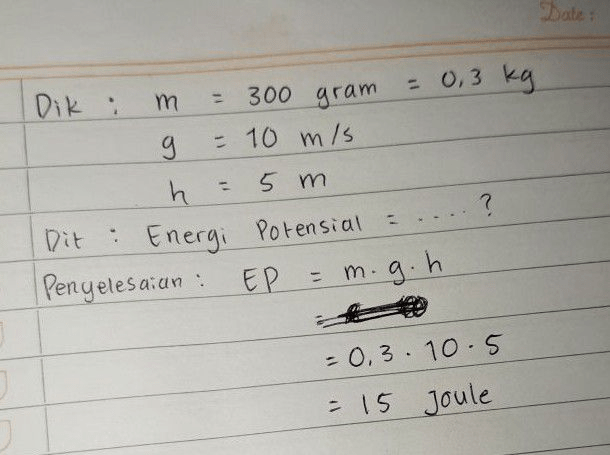 Date :
Dik : m = 300 gram = 0,3 kg
g = 10 m/s
h = 5 m
Dit : Energi Potensial = .... ?
Penyelesaian : EP = m . g . h
=
= 0,3 . 10 . 5
= 15 Joule